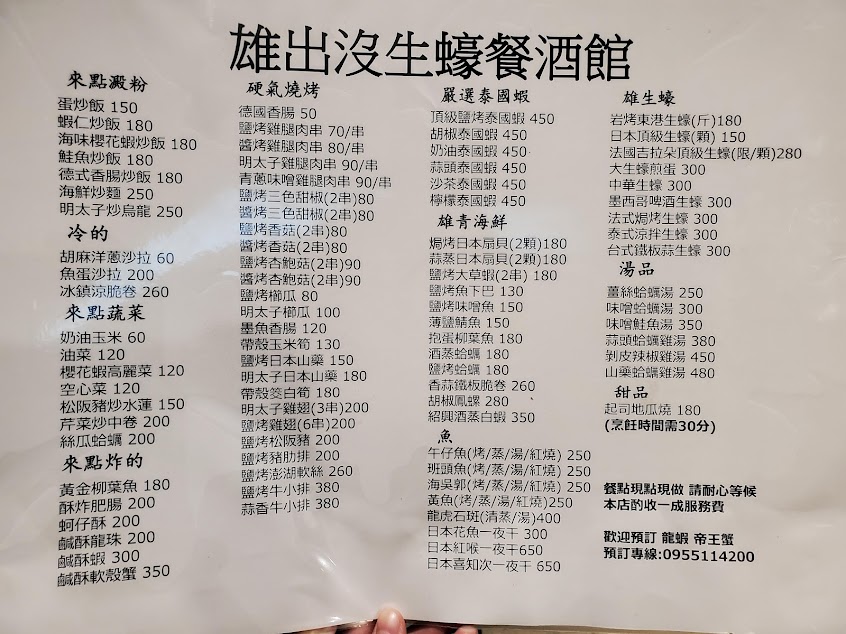 雄出沒生蠔餐酒館
來點澱粉
蛋炒飯 150
蝦仁炒飯 180
海味櫻花蝦炒飯 180
鮭魚炒飯 180
德式香腸炒飯 180
海鮮炒麵 250
明太子炒烏龍 250
冷的
胡麻洋蔥沙拉 60
魚蛋沙拉 200
冰鎮涼脆卷 260
來點蔬菜
奶油玉米 60
油菜 120
櫻花蝦高麗菜 120
空心菜 120
松阪豬炒水蓮 150
芹菜炒中卷 200
絲瓜蛤蠣 200
來點炸的
黃金柳葉魚 180
酥炸肥腸 200
蚵仔酥 200
鹹酥龍珠 200
鹹酥蝦 300
鹹酥軟殼蟹 350
硬氣燒烤
德國香腸 50
鹽烤雞腿肉串 70/串
醬烤雞腿肉串 80/串
明太子雞腿肉串 90/串
青蔥味噌雞腿肉串 90/串
鹽烤三色甜椒(2串)80
醬烤三色甜椒(2串)80
鹽烤香菇(2串)80
醬烤香菇(2串)80
鹽烤杏鮑菇(2串)90
醬烤杏鮑菇(2串)90
鹽烤櫛瓜 80
明太子櫛瓜 100
墨魚香腸 120
帶殼玉米筍 130
鹽烤日本山藥 150
明太子日本山藥 180
帶殼筊白筍 180
明太子雞翅(3串)200
鹽烤雞翅(6串)200
鹽烤松阪豬 200
鹽烤豬肋排 200
鹽烤澎湖軟絲 260
鹽烤牛小排 380
蒜香牛小排 380
嚴選泰國蝦
頂級鹽烤泰國蝦 450
胡椒泰國蝦 450
奶油泰國蝦 450
蒜頭泰國蝦 450
沙茶泰國蝦 450
檸檬泰國蝦 450
雄青海鮮
焗烤日本扇貝(2顆)180
蒜蒸日本扇貝(2顆)180
鹽烤大草蝦(2串) 180
鹽烤魚下巴 130
鹽烤味噌魚 150
薄鹽鯖魚 150
抱蛋柳葉魚 180
酒蒸蛤蠣 180
鹽烤蛤蠣 180
香蒜鐵板脆卷 260
胡椒鳳螺 280
紹興酒蒸白蝦 350
魚
午仔魚(烤/蒸/湯/紅燒) 250
班頭魚(烤/蒸/湯/紅燒) 250
海吳郭(烤/蒸/湯/紅燒) 250
黃魚(烤/蒸/湯/紅燒)250
龍虎石斑(清蒸/湯)400
日本花魚一夜干 300
日本紅喉一夜干650
日本喜知次一夜干 650
雄生蠔
岩烤東港生蠔(斤)180
日本頂級生蠔(顆) 150
法國吉拉朵頂級生蠔(限/顆)280
大生蠔煎蛋 300
中華生蠔 300
墨西哥啤酒生蠔 300
法式焗烤生蠔 300
泰式涼拌生蠔 300
台式鐵板蒜生蠔 300
湯品
薑絲蛤蠣湯 250
味噌蛤蠣湯 300
味噌鮭魚湯 350
蒜頭蛤蠣雞湯 380
剝皮辣椒雞湯 450
山藥蛤蠣雞湯 480
甜品
起司地瓜燒 180
(烹飪時間需30分)
餐點現點現做 請耐心等候
本店酌收一成服務費
歡迎預訂 龍蝦 帝王蟹
預訂專線:0955114200